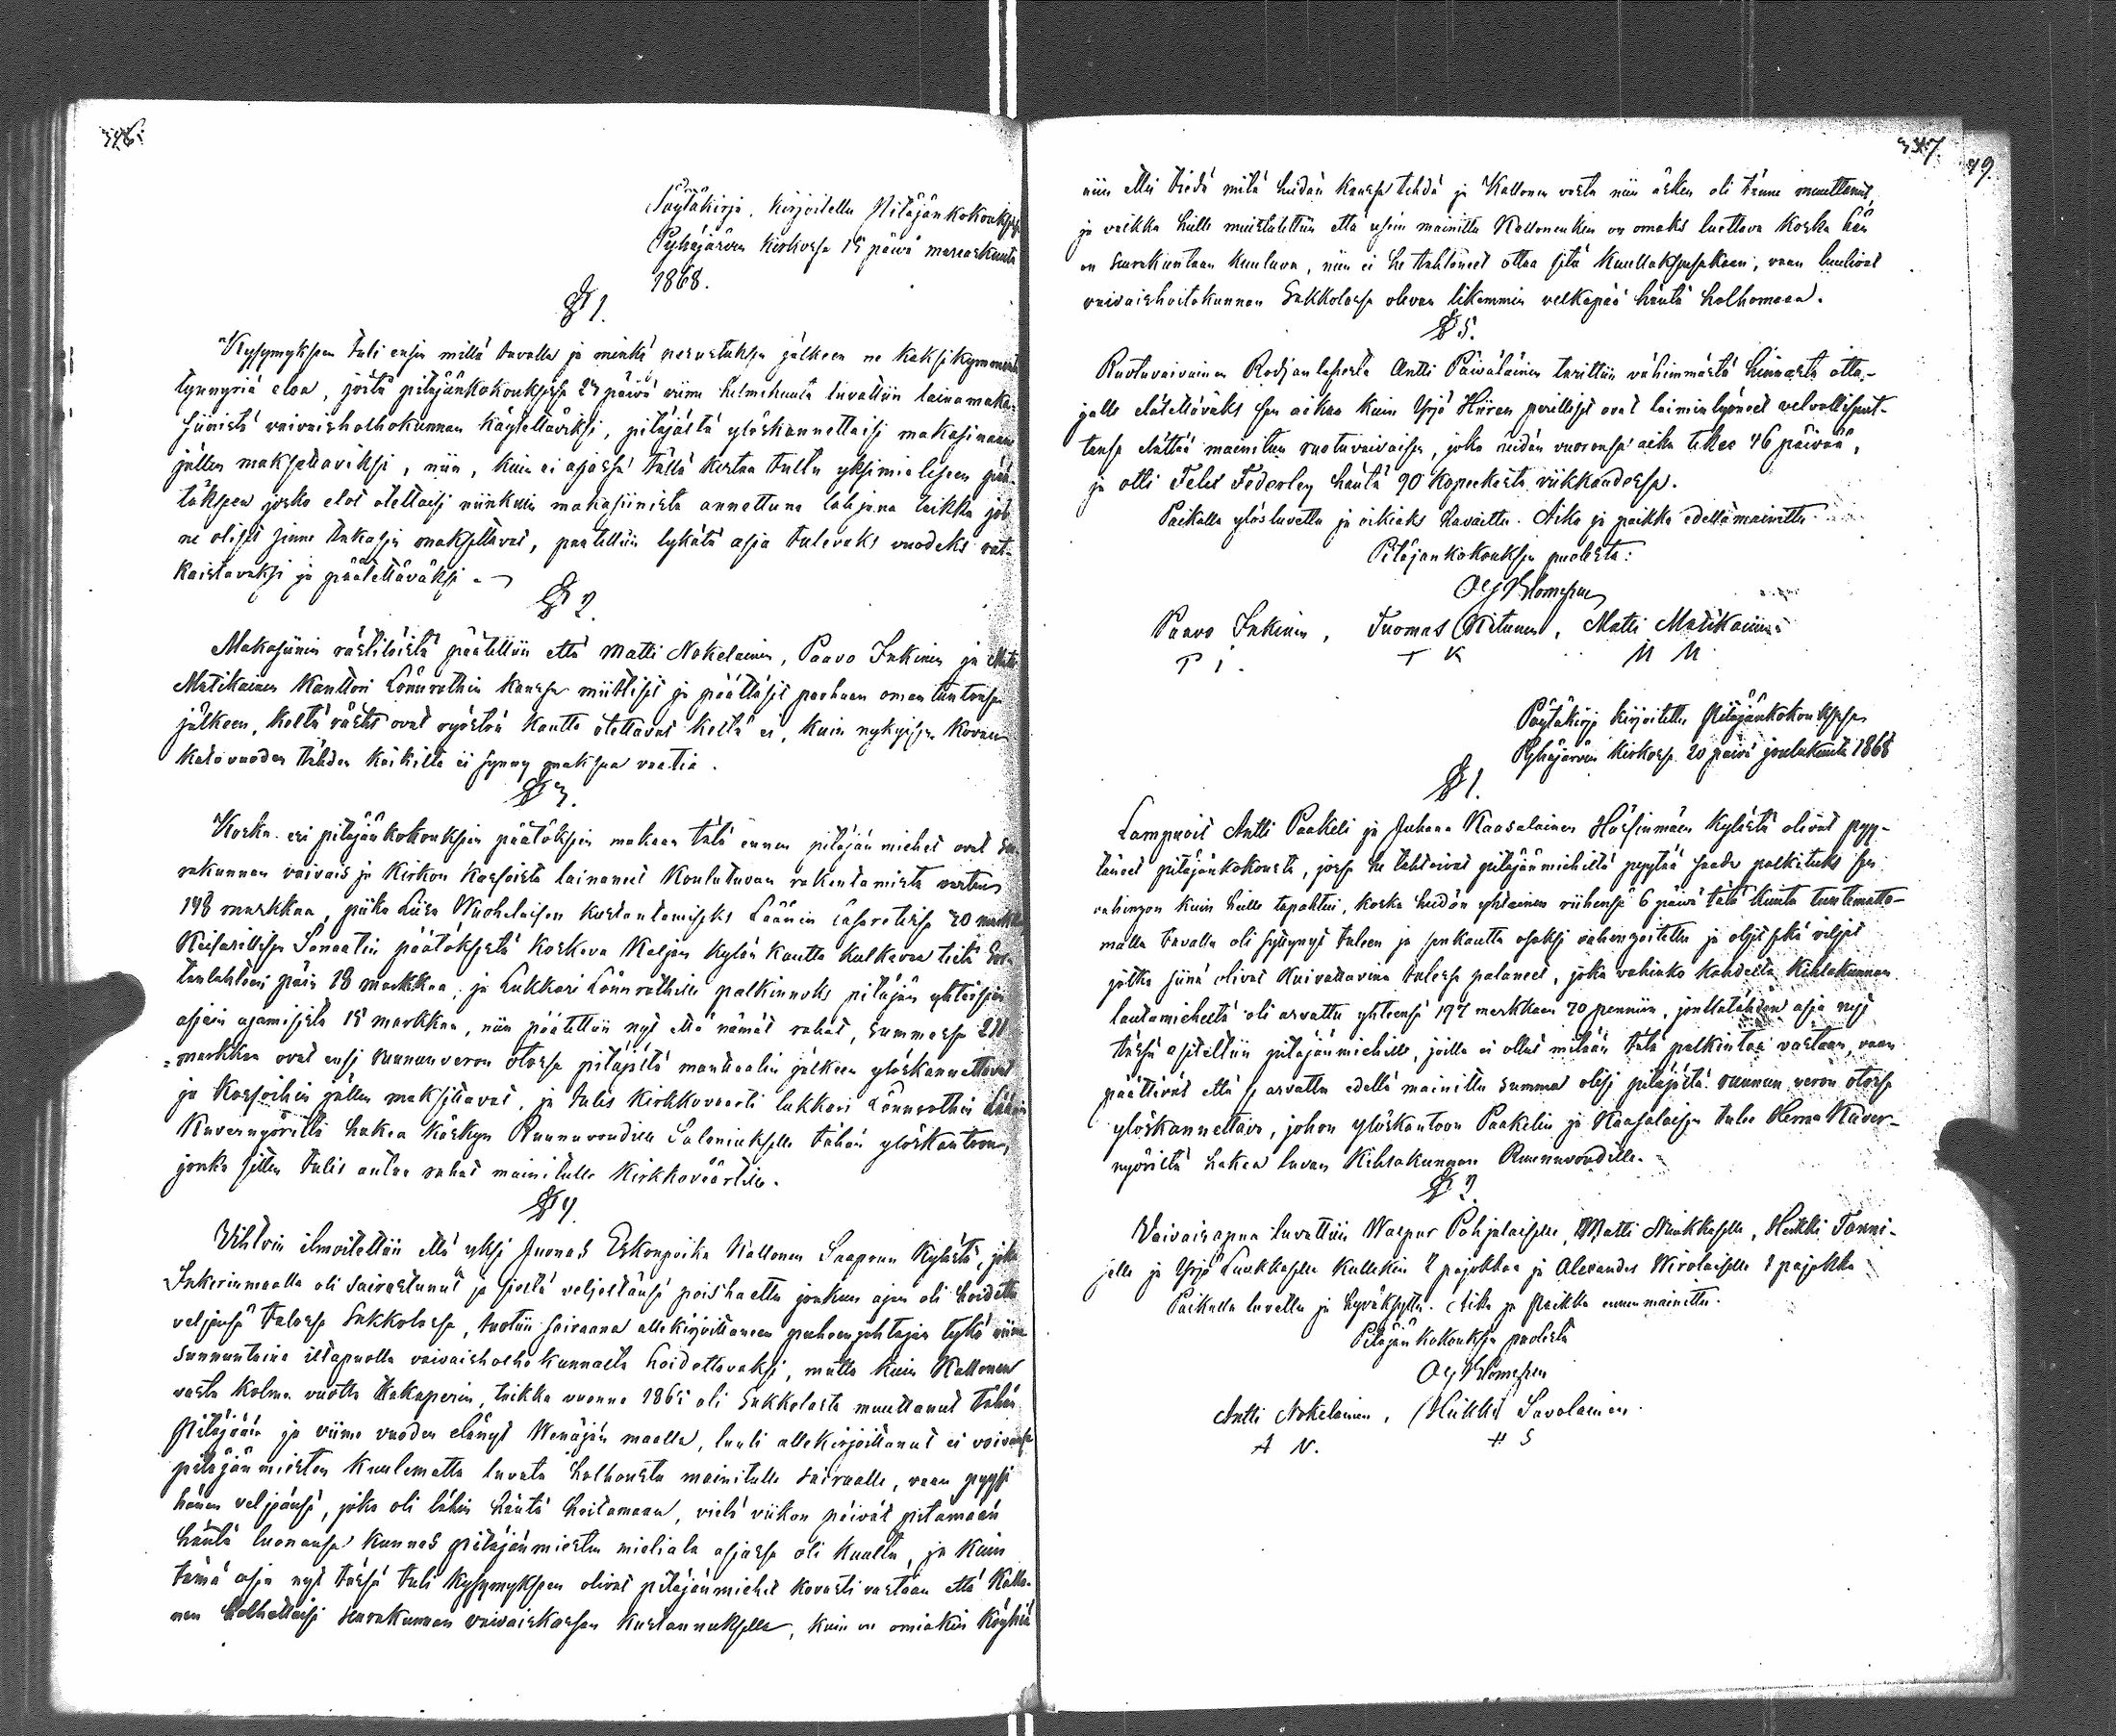 346.
Pöytäkirja, kirjoitettu Pitäjänkokouksessa
Pyhäjärven kirkossa 15 päivä marraskuuta
1868.
§ 1.
Kysymykseen tuli ensin millä tavalla ja minkä perustuksen jälkeen ne kaksikymmentä
tynnyriä eloa, joita pitäjänkokouksessa 23 päivä viime helmikuuta luvattiin lainamaka-
siinista vaivaisholhokunnan käytettäviksi, pitäjästä ylöskannettaisi makasiinaan
jällen maksettaviksi, niin, kuin ei asjassa tällä kertaa tultu yksimieliseen pää-
tökseen josko elot otettaisi niinkuin makasiinista annettuna lahjana taikka jos
ne olisit sinne takasin maksettavat, päätettiin lykätä asia tulevaks vuodeks rat-
kaistavaksi ja päätettäväksi.
§ 2.
Makasiinin rästilöistä päätettiin että Matti Nokelainen, Paavo Inkinen ja Matti
Matikainen Kanttori Lönnrothin kanssa miittisit ja päättäsit parhaan omantuntonsa
jälkeen, keltä rästit ovat ryöstön kautta otettavat keltä ei, kuin nykyisen kovan
katovuoden tähden kaikilta ei synny maksua vaatia.
§ 3.
Koska eri pitäjänkokouksien päätöksien mukaan tätä ennen pitäjänmiehet ovat seu-
rakunnan vaivais ja kirkon kassoista lainaneet koulutuvan rakentamista varten
148 markkaa, piika Liisa Wuohelaisen kustantamiseks Läänin lasaretissa 30 markkaa
Keisarillisen Senaatin päätöksestä koskeva Kaljan kylän kautta kulkevaa tietä
päin 18 markkaa, ja Lukkari Lönnrothille palkinnoks pitäjän yhteisten
asjain ajamisesta 15 markkaa, niin päätettiin nyt että nämät rahat, summassa 211
markkaa ovat ensi ruununveron otossa pitäjältä mantaalin jälkeen ylöskannettavat
ja kassoihin jällen maksettavat, ja tulis kirkkovaarti lukkari Lönnrothin Läänin
Kuvernyöriltä hakea käskyn Ruunuvoudille Saloniukselle tähän ylöskantoon,
jonka sitten tulis antaa rahat mainitulle kirkkoväärtille.
§ 4.
Vihtoin ilmoitettiin että yksi Juonas Eskonpoika Kallonen Saaprun kylästä, joka
Inkerinmaalla oli sairastunut ja sieltä veljeltänsä poishaettu jonkun ajan oli hoidettu
veljensä talossa Sakkolassa, tuotiin sairaana allekirjoittaneen puheenjohtajan tykö viime
sunnuntaina iltapuolla vaivaisholhokunnalta hoidettavaksi, mutta kuin Kallonen
vasta kolme vuotta takaperin, taikka vuonna 1865 oli Sakkolasta muuttanut tähän
Pitäjään ja viime vuoden elänyt Wenäjän maalla, luuli allekirjoittanut ei voivansa
pitäjänmiesten kuulematta luvata holhousta mainitulle sairaalle, vaan pyysi
hänen veljeänsä, joka oli lähin häntä hoitamaan, vielä viikon päivät pitämään
häntä luonansa kunnes pitäjänmiesten mieliala asjassa oli kuultu, ja kuin
tämä asia nyt tässä tuli kysymykseen olivat pitäjänmiehet kovasti vastaan että Kallo-
nen holhottaisi seurakunnan vaivaiskassan kustannuksella, kuin on omiakin köyhiä
347.
49.
niin ettei tiedä mitä heidän kanssa tehdä ja Kallonen vasta niin äsken oli tänne muuttanut,
ja vaikka heille muistutettiin että usein mainittu Kallonenkin on omaks luettava koska hän
on seurakuntaan kuuluva, niin ei he tahtoneet ottaa sitä kuullaksensakaan, vaan luulivat
vaivaishoitokunnan Sakkolassa olevan likemmin velkapää häntä holhomaan.
§ 5.
Ruotuvaivainen Rodjanlahosta Antti Päiväläinen tarittiin vähimmästä hinnasta otta-
jalle elätettäväks sen aikaa kuin Yrjö Hiiren perilliset ovat laiminlyöneet velvollisuut-
tansa elättää mainitun ruotuvaivaisen, joka heidän vuoronsa aika tekee 46 päivää,
ja otti Feles Federley häntä 90 kopeekasta viikkaudessa.
Paikalla ylösluvettu ja oikiaks havaittu. Aika ja paikka edellämainittu.
Pitäjänkokouksen puolesta:
Paavo Inkinen, Tuomas Kitunen, Matti Matikainen
P I. T K M M
Pöytäkirja kirjoitettu Pitäjänkokouksessa
Pyhäjärven kirkossa 20 päivä joulukuuta 1868
§ 1.
Lampuoit Antti Paakeli ja Juhana Kaasalainen Hassinmäen kylästä olivat pyy-
täneet pitäjänkokousta, jossa he tahtoivat pitäjänmiehiltä pyytää saada palkituks sen
vahingon kuin heille tapahtui, koska heidän yhteinen riihensä 6 päivä tätä kuuta tuntematto-
malla tavalla oli syttynyt tuleen ja senkautta osaksi vahingoitettu ja osit sekä viljat
jotka siinä olivat kuivattavina tulessa palaneet, joka vahinko kahdelta kihlakunnan
lautamieheltä oli arvattu yhteensä 197 markkaan 70 penniin, jonkatähden asia nyt
tässä esiteltiin pitäjänmiehille, joilla ei ollut mitään tätä palkintaa vastaan, vaan
päättivät että se arvattu edellä mainittu summa olisi pitäjästä ruunun veron otossa
ylöskannettava, johon ylöskantoon Paakelin ja Kaasalaisen tulee Herra Kuver-
nyöriltä hakea luvan Kihlakunnan Ruunuvoudille.
§ 2.
Vaivaisapua luvattiin Walpur Pohjalaiselle, Matti Niukkaselle, Heikki Tanni-
selle ja Yrjö Luukkaselle kullekin 2 pajokkaa ja Alexander Wirolaiselle 1 pajokka
Paikalla luvettu ja hyväksytty. Aika ja Paikka ennenmainittu.
Pitäjän kokouksen puolesta
Antti Nokelainen, Heikki Savolainen.
A N. H S